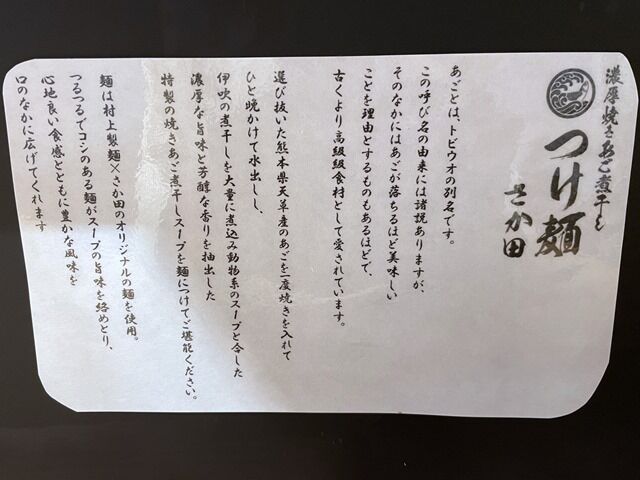 濃厚焼きあご煮干し
つけ麺
さか田
あごとは、トビウオの別名です。
この呼び名の由来には諸説ありますが、
そのなかにはあごが落ちるほど美味しい
ことを理由とするものもあるほどで、
古くより高級級食材として愛されています。
選び抜いた熊本県天草産のあごを一度焼きを入れて
ひと晩かけて水出しし、
伊吹の煮干しを大量に煮込み動物系のスープと合した
濃厚な旨味と芳醇な香りを抽出した
特製の焼きあご煮干しスープを麺につけてご堪能ください。
麺は村上製麺×さか田のオリジナルの麺を使用。
つるつるでコシのある麺がスープの旨味を絡めとり、
心地良い食感とともに豊かな風味を
口のなかに広げてくれます